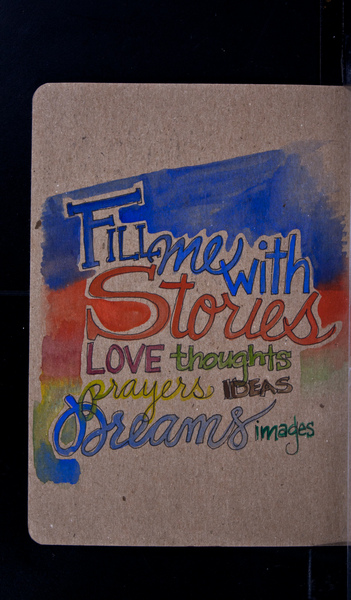 FILL me with
Stories
LOVE thoughts
prayers IDEAS
Dreams images